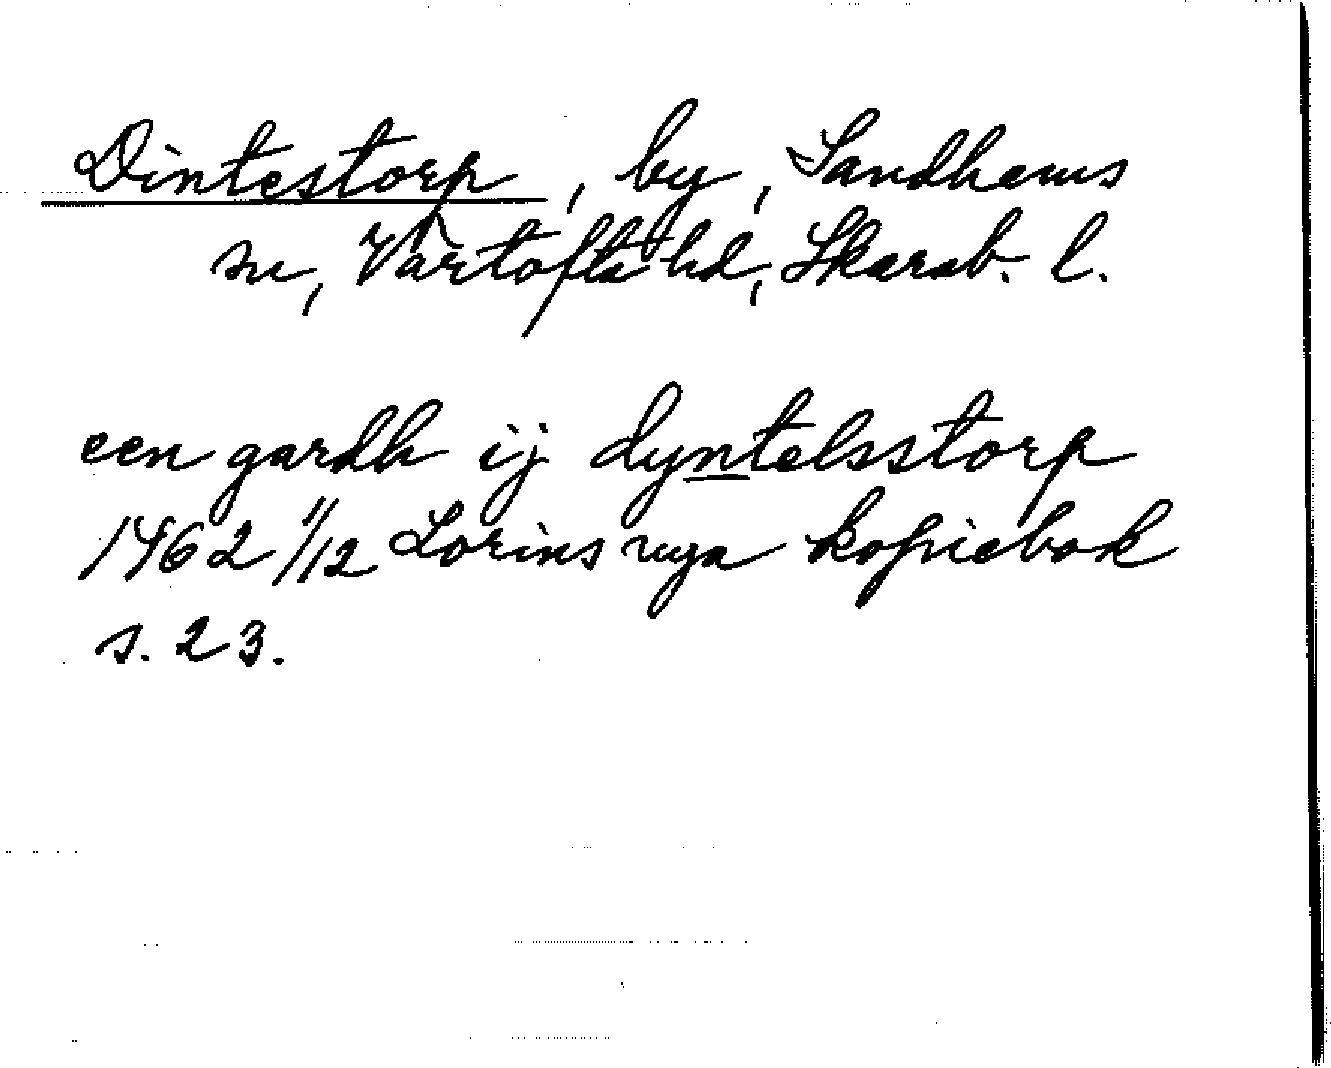 Dintestorp, by, Sandhems
sn, Vartofta hd, Skarab. l.
een gardh ij dyntelsstorp
1462 1/12 Lorins nya kopiebok
s. 23.